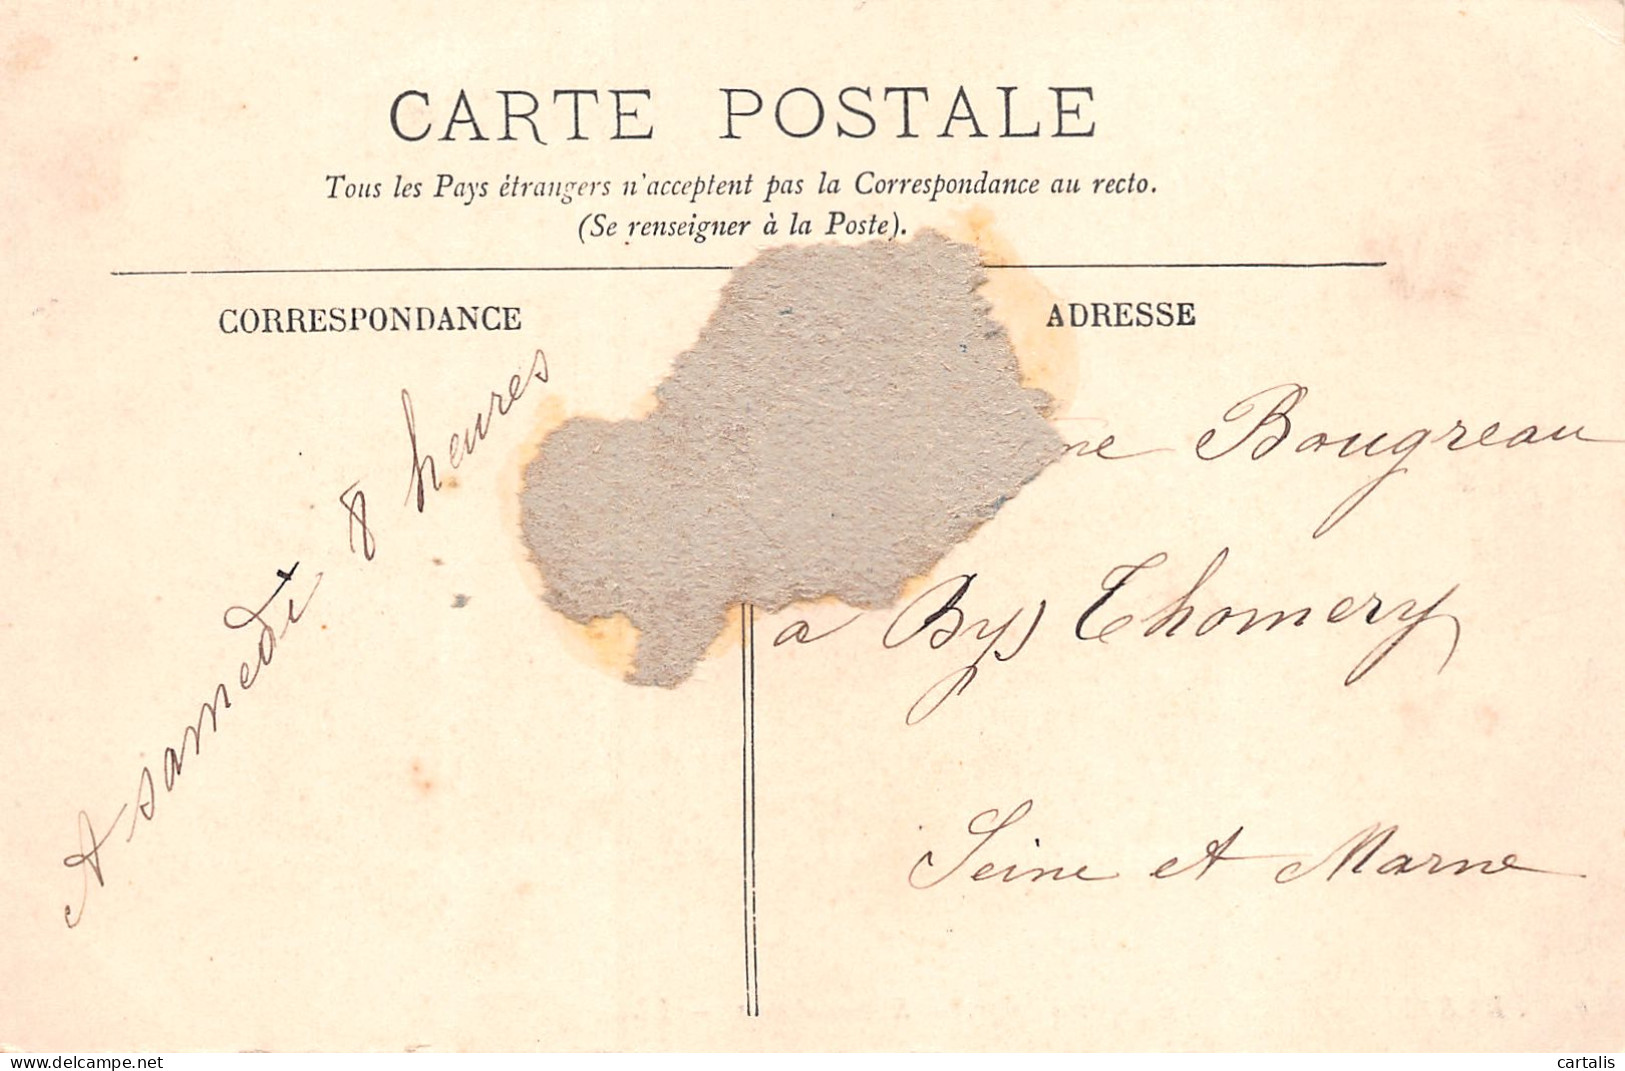 CARTE POSTALE
Tous les Pays étrangers n'acceptent pas la Correspondance au recto.
(Se renseigner à la Poste).
CORRESPONDANCE
A samedi 8 heures
ADRESSE
ne Bougreau
a By Thomery
Seine et Marne
cartalis